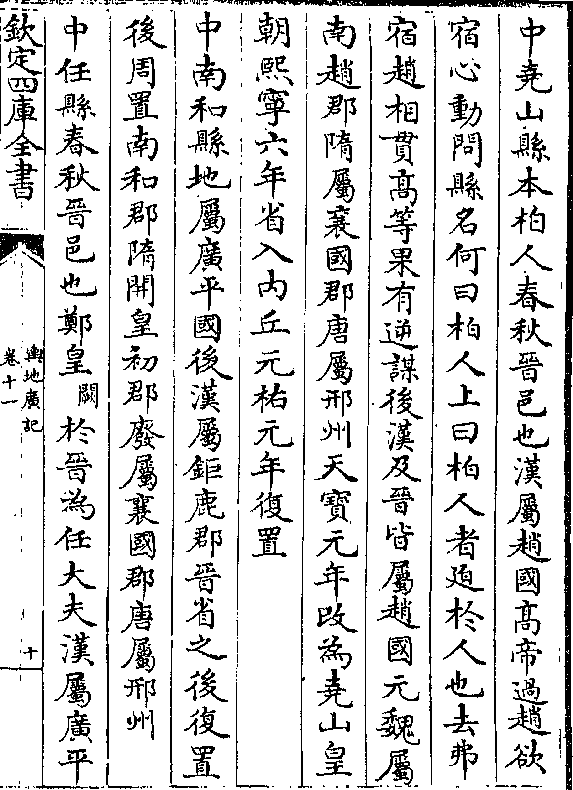 中堯山縣本柏人春秋晉邑也漢屬趙國髙帝過趙欲
宿心動問縣名何曰柏人上曰柏人者廹於人也去弗
宿趙相貫髙等果有逆謀後漢及晉皆屬趙國元魏屬
南趙郡隋屬襄國郡唐屬邢州天寶元年改為堯山皇
朝熙寧六年省入内丘元祐元年復置
中南和縣地屬廣平國後漢屬鉅鹿郡晉省之後復置
後周置南和郡隋開皇初郡廢屬襄國郡唐屬邢州
中任縣春秋晉邑也鄭皇闕於晉為任大夫漢屬廣平
欽定四庫全書
輿地廣記
卷十一
十